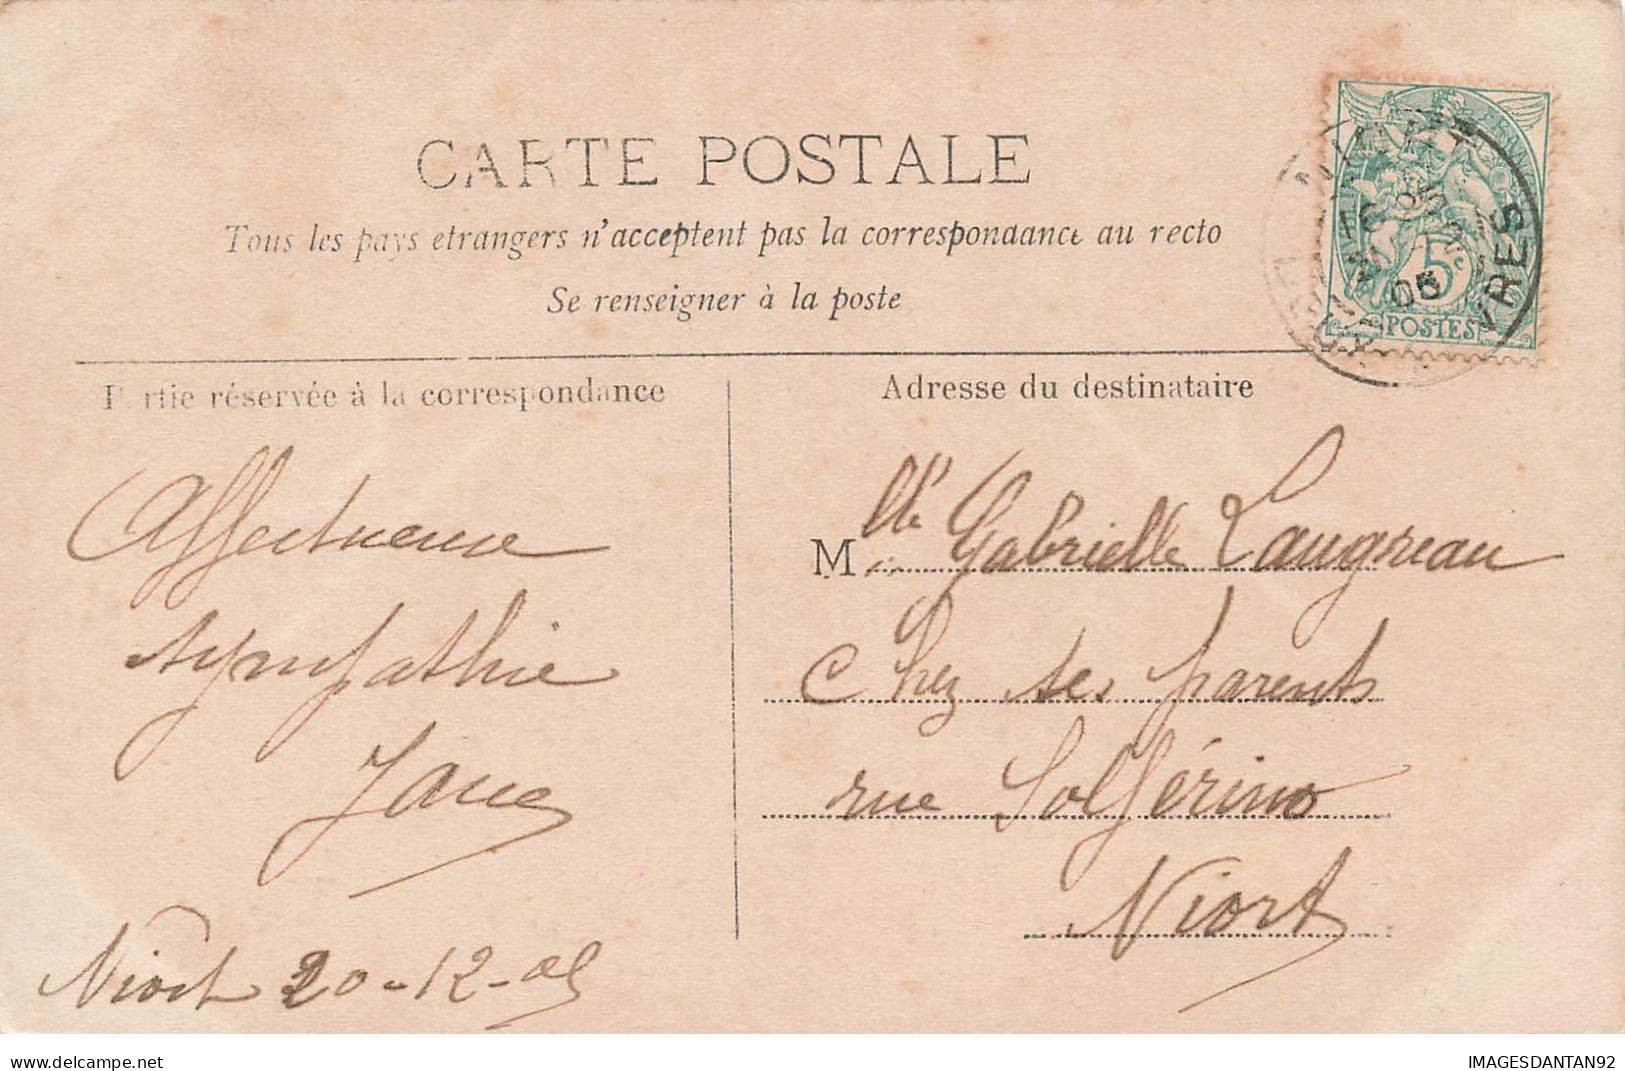 CARTE POSTALE
Tous les pays etrangers n'acceptent pas la correspondance au recto
Se renseigner à la poste
Partie réservée à la correspondance
Adresse du destinataire
Affectueuse
sympathie
Niort 20-12-05
Mlle Gabrielle Laugreau
Chez ses parents
rue Solférino
Niort
5c
POSTES
NIORT
05
delcampe.net
IMAGESDANTAN92